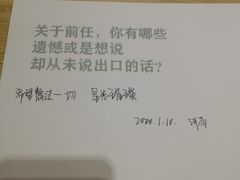 关于前任，你有哪些
遗憾或是想说
却从未说出口的话？
希望熬过一切 星光璀璨
2020.1.10.